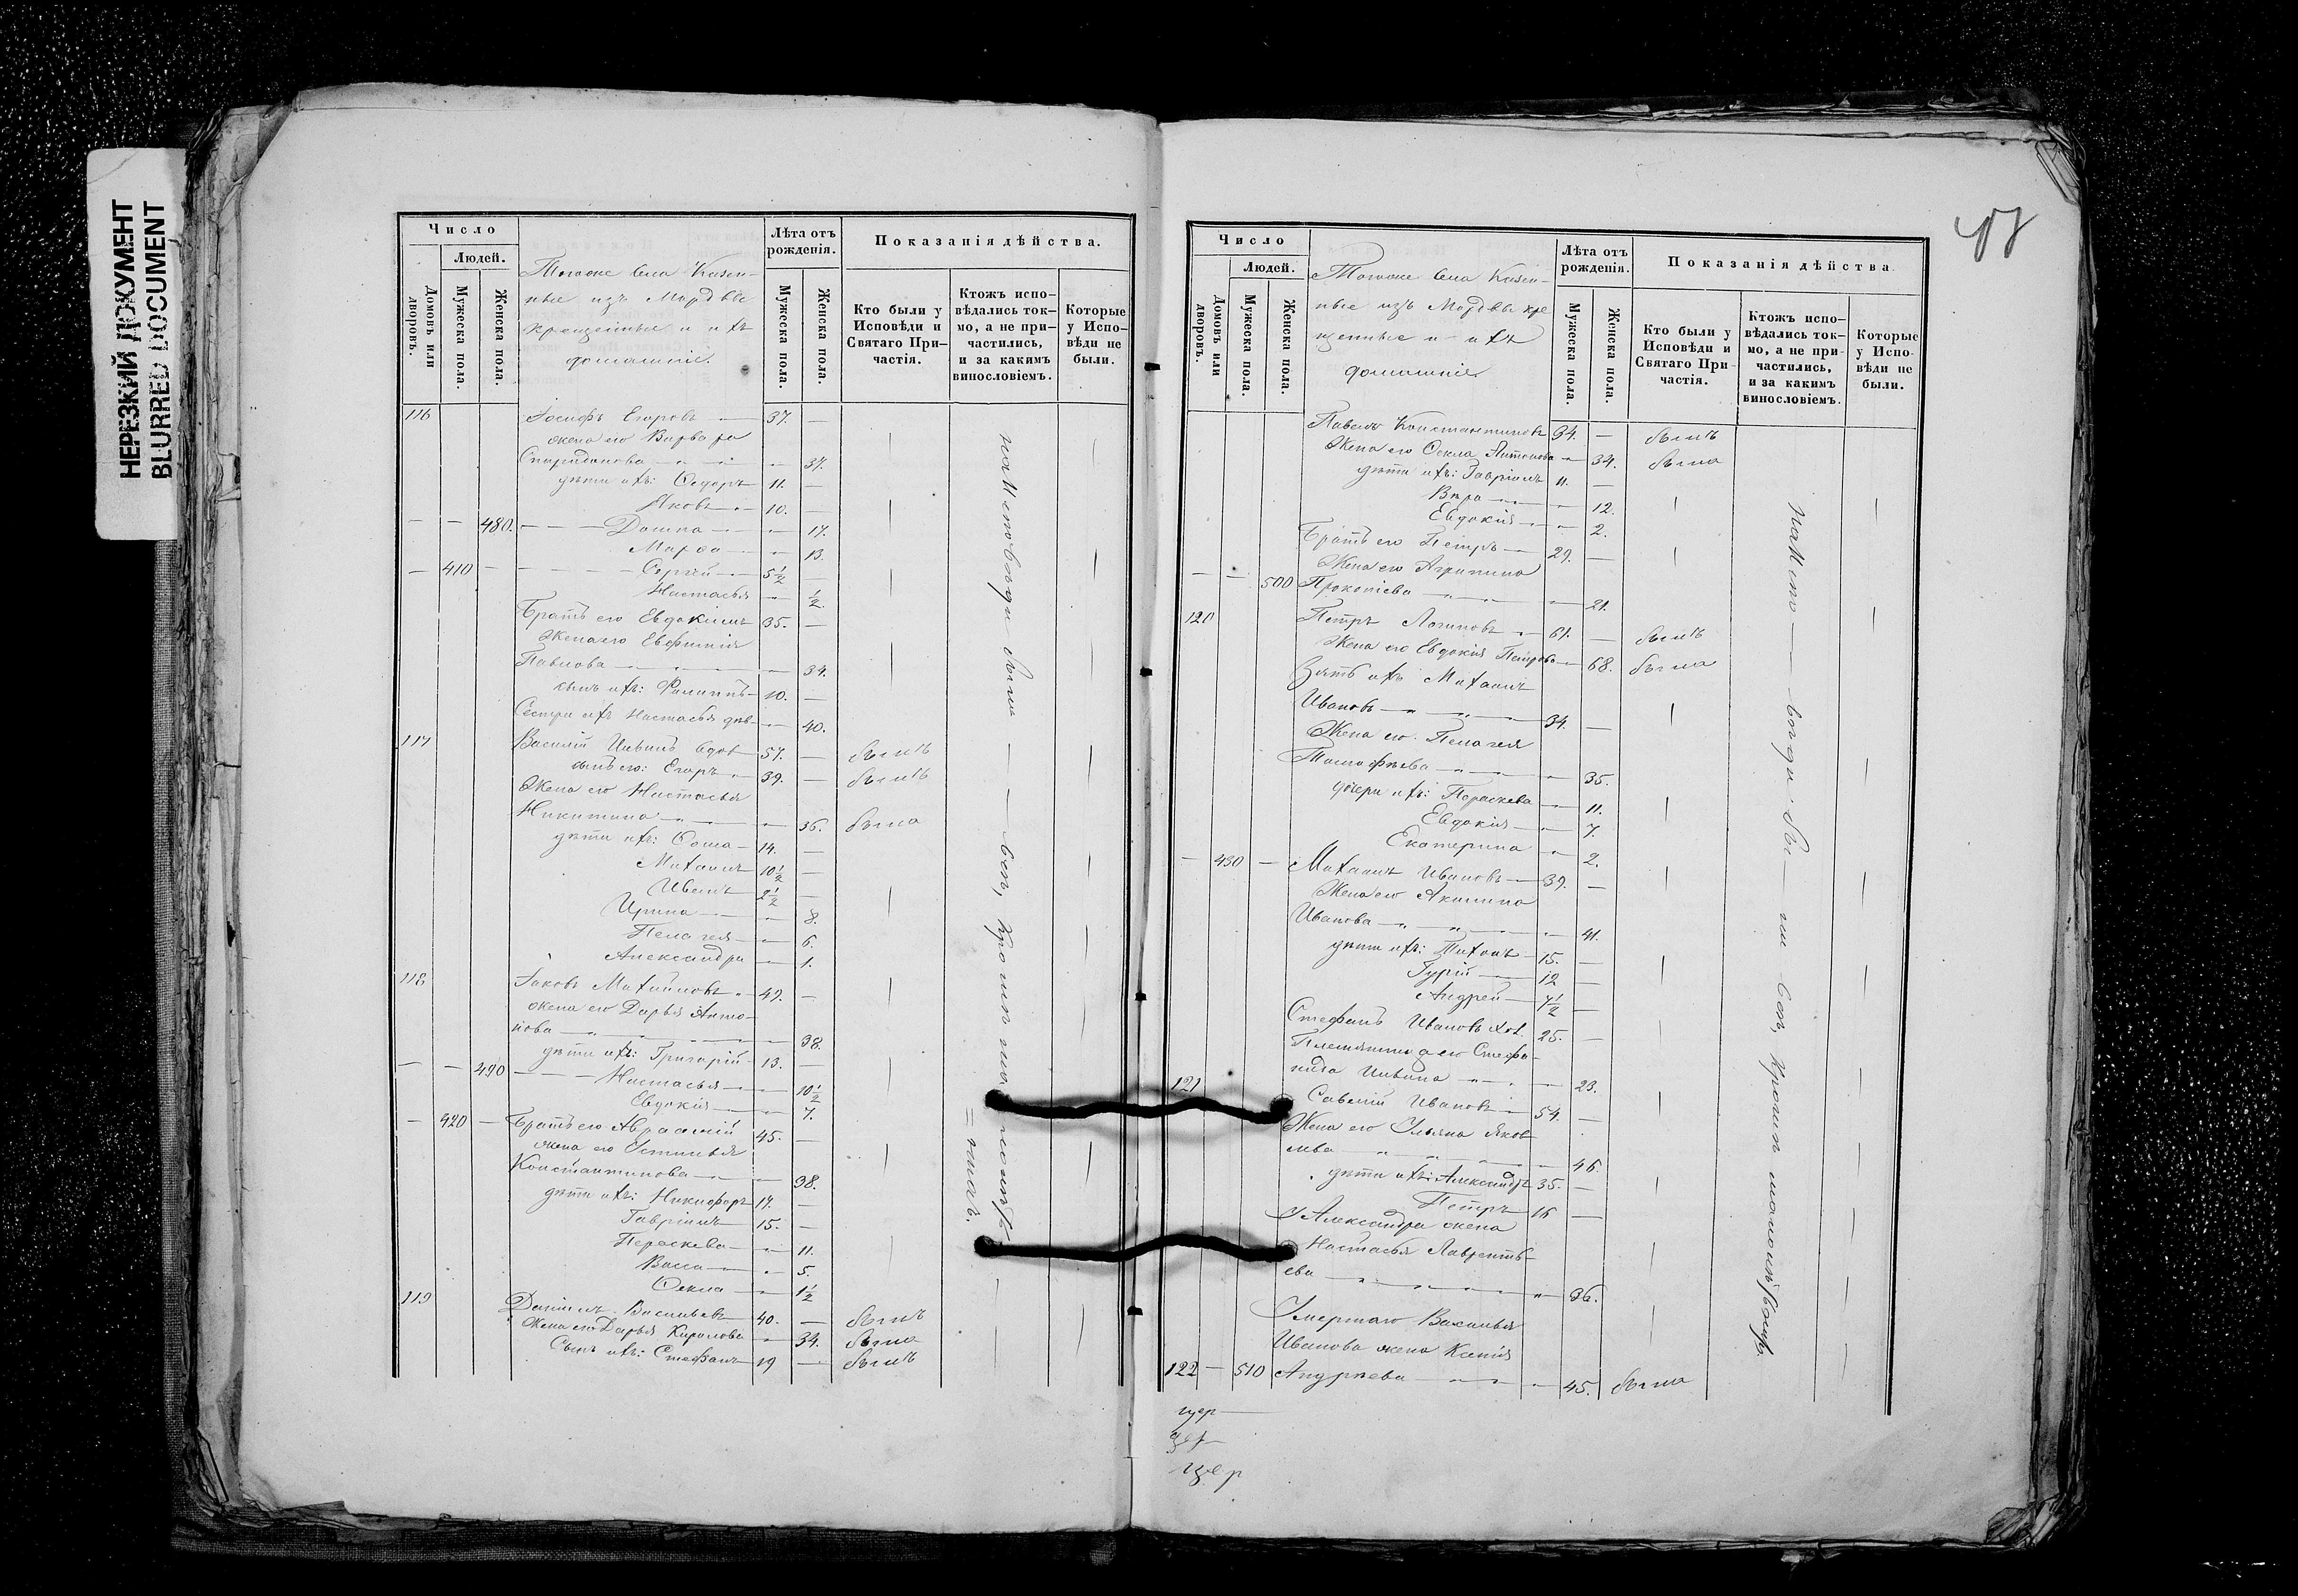 НЕРЕЗКИЙ ДОКУМЕНТ
BLURRED DOCUMENT
Число
Людей.
Домовъ или дворовъ.
Мужеска пола.
Женска пола.
Тогоже села Казен-
ные изъ Мордвы
крещенные и ихъ
домашніе.
Лѣта отъ рожденія.
Мужеска пола.
Женска пола.
Показанія дѣйства.
Кто были у Исповѣди и Святаго Причастія.
Ктожъ исповѣдались токмо, а не причастились, и за какимъ винословіемъ.
Которые у Исповѣди не были.
116 Іосифъ Егоровъ — 37. —
жена его Варвара
Спиридонова — 37.
дѣти ихъ: Ѳедоръ 11. —
Яковъ 10. —
— — 480. — Домна — 17.
Марѳа — 13.
— 410 — — Сергѣй 5½ —
Настасья — ½.
Братъ его Евдокимъ 35. —
Жена его Евфимія
Павлова — 34.
сынъ ихъ: Филиппъ 10. —
Сестра ихъ Настасья дѣв — 40.
117 Василій Ивинъ вдов 57. — былъ
сынъ его: Егоръ 39. — былъ
Жена его Настасья
Никитина — 36. была
дѣти ихъ: Ѳома 14. —
Михаилъ 10½ —
Иванъ 2½ —
Ирина — 8.
Пелагея — 6.
Александра — 1.
118 Іаковъ Михайловъ 49. —
жена его Дарья Анто-
нова — 38.
дѣти ихъ: Григорій 13. —
— — 490 — Настасья — 10½
Евдокія — 7.
— 420 — Братъ его Авраамій 45. —
жена его Устинья
Константинова — 38.
дѣти ихъ: Никифоръ 17. —
Гавріилъ 15. —
Параскева — 11.
Васса — 5.
Ѳекла — 1½
119 Даніилъ Васильевъ 40. — былъ
Жена его Дарья Кирилова — 34. была
Сынъ ихъ: Стефанъ 19 — былъ
на исповѣди были — — всѣ, кромѣ
Число
Людей.
Домовъ или дворовъ.
Мужеска пола.
Женска пола.
Тогоже села Казен-
ные изъ Мордвы кре
щенные и ихъ
домашніе
Лѣта отъ рожденія.
Мужеска пола.
Женска пола.
Показанія дѣйства
Кто были у Исповѣди и Святаго Причастія.
Ктожъ исповѣдались токмо, а не причастились, и за какимъ винословіемъ.
Которые у Исповѣди не были.
Павелъ Константиновъ 34. — былъ
Жена его Ѳекла Антонова — 34. была
дѣти ихъ: Гавріилъ 11. —
Вѣра — 12.
Евдокія — 2.
Братъ его Петръ 29. —
Жена его Агрипина
— — 500 Прокопіева — 21.
120 Петръ Логиновъ 61. — былъ
Жена его Евдокія Петрова — 68. была
Зять ихъ Михаилъ
Ивановъ 34. —
Жена его Пелагея
Тимофѣева — 35.
дочери ихъ: Параскева — 11.
Евдокія — 7.
Екатерина — 2.
— 430 — Михаилъ Ивановъ 39. —
Жена его Акилина
Иванова — 41.
дѣти ихъ: Тихонъ 15. —
Гурій 12 —
Андрей 7½ —
Стефанъ Ивановъ хол. 25. —
Племянница его Стефа-
нида Ивина — 23.
121 Савелій Ивановъ 54. —
Жена его Ульяна Яков
лева — 46.
дѣти ихъ: Александръ 35. —
Петръ 16 —
У Александра жена
Настасья Лавренть-
ева — 36.
Умершаго Василья
Иванова жена Ксенія
122 — 510 Андреева — 45. была